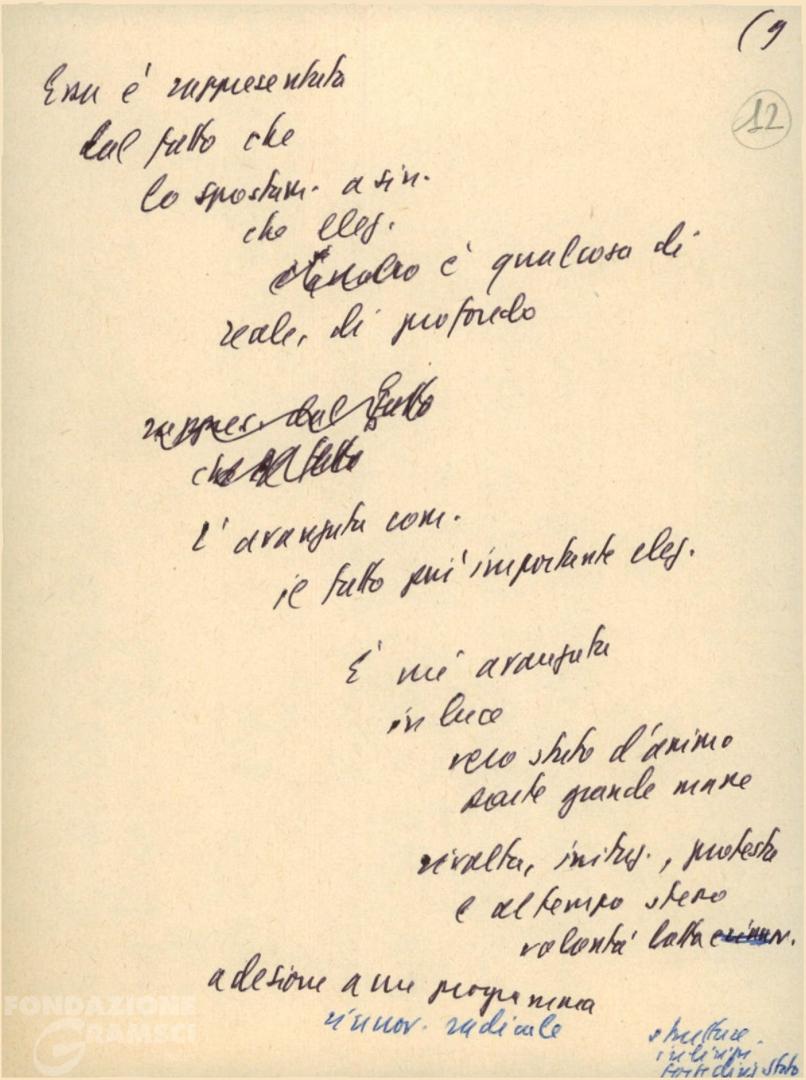 (9
12
Essa è rappresentata
dal fatto che
lo spostam. a sin.
che eleg.
è qualcosa di
reale, di profondo
rappres. dal fatto
che
L'avanzata com.
il fatto più importante eleg.
E mi avanzata
in luce
vero stato d'animo
parte grande masse
rivolta, , protesta
e al tempo stesso
volontà lotta e rinnov.
adesione a un programma
rinnov. radicale
strutture.
indirizzi
stato
FONDAZIONE
GRAMSCI